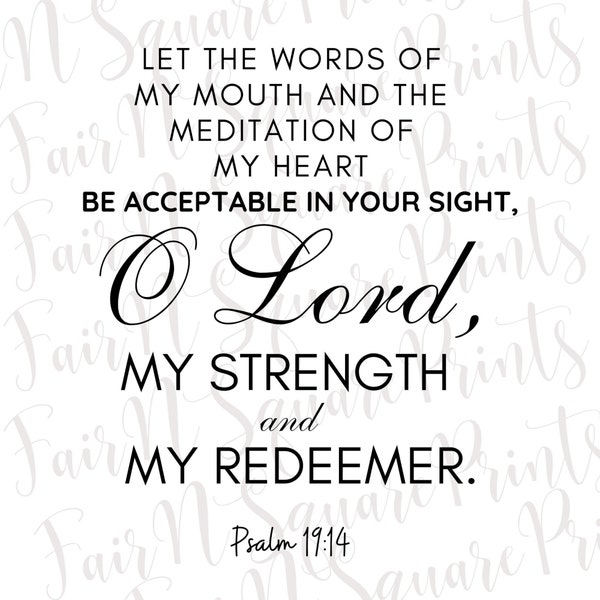 LET THE WORDS OF
MY MOUTH AND THE
MEDITATION OF
MY HEART
BE ACCEPTABLE IN YOUR SIGHT,
O Lord,
MY STRENGTH
and
MY REDEEMER.
Psalm 19:14
Fair N Square Prints